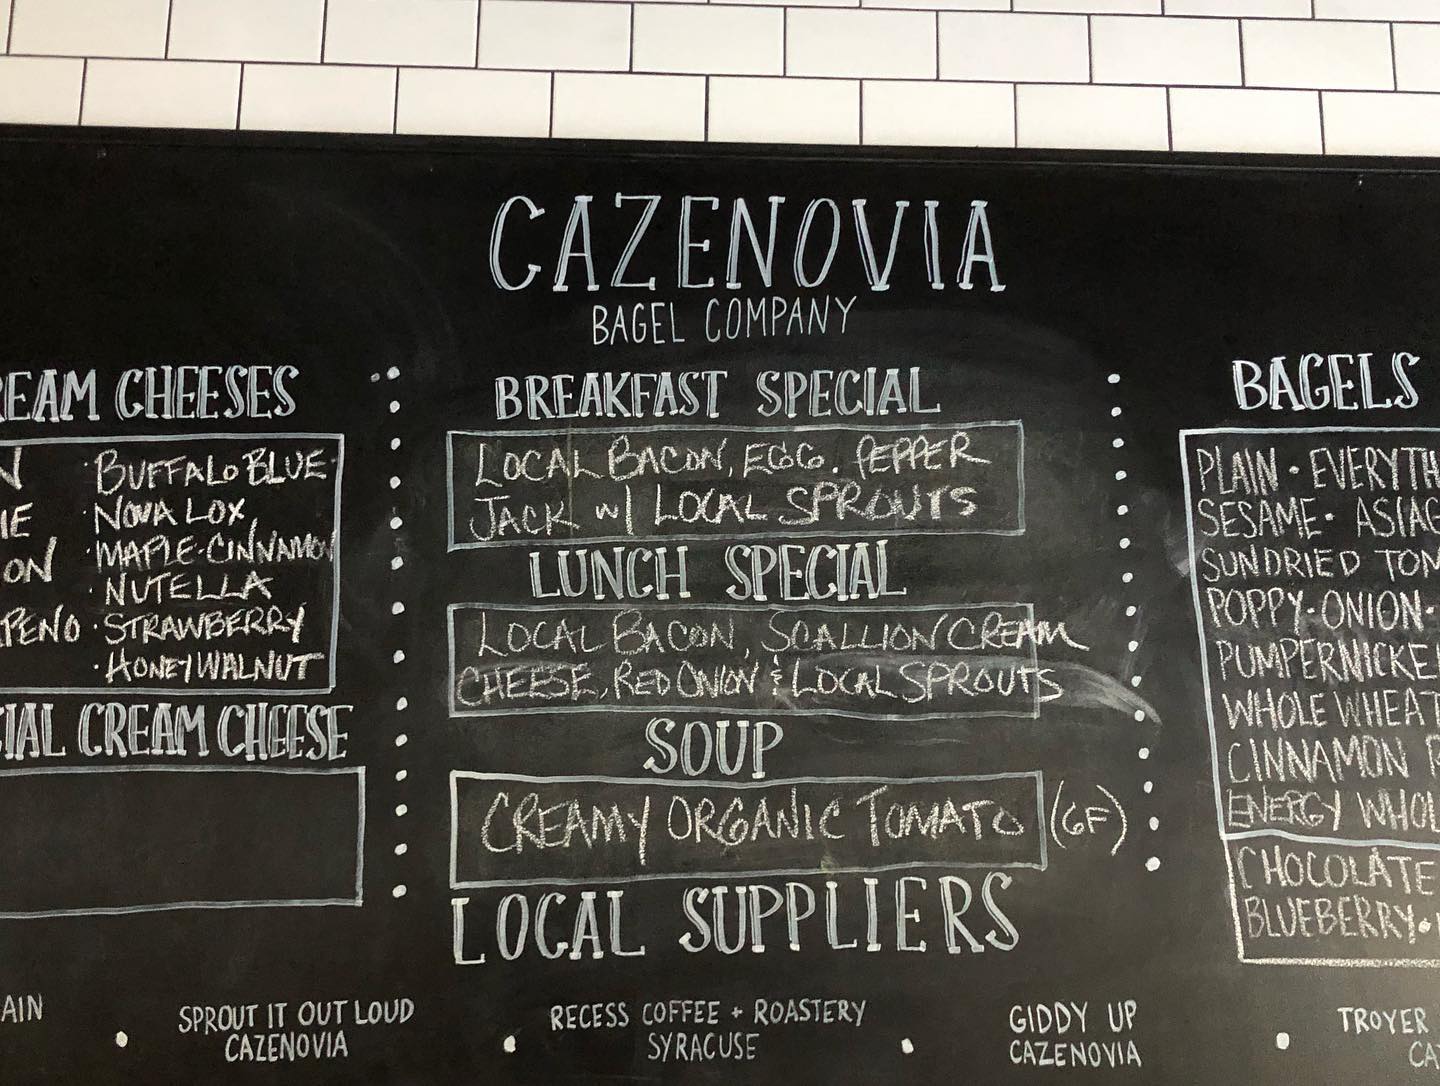 CAZENOVIA
BAGEL COMPANY
REAM CHEESES
N
IE
ON
PENO
· BUFFALO BLUE ·
· NOVA LOX
· MAPLE-CINNAMON
· NUTELLA
· STRAWBERRY
· HONEY WALNUT
IAL CREAM CHEESE
BREAKFAST SPECIAL
LOCAL BACON, EGG. PEPPER
JACK w/ LOCAL SPROUTS
LUNCH SPECIAL
LOCAL BACON, SCALLION CREAM
CHEESE, RED ONION & LOCAL SPROUTS
SOUP
CREAMY ORGANIC TOMATO (GF)
LOCAL SUPPLIERS
BAGELS
PLAIN · EVERYTH
SESAME · ASIAG
SUNDRIED TOM
POPPY · ONION ·
PUMPERNICKE
WHOLE WHEAT
CINNAMON R
ENERGY WHOL
CHOCOLATE
BLUEBERRY ·
AIN
SPROUT IT OUT LOUD
CAZENOVIA
RECESS COFFEE + ROASTERY
SYRACUSE
GIDDY UP
CAZENOVIA
TROYER
CA